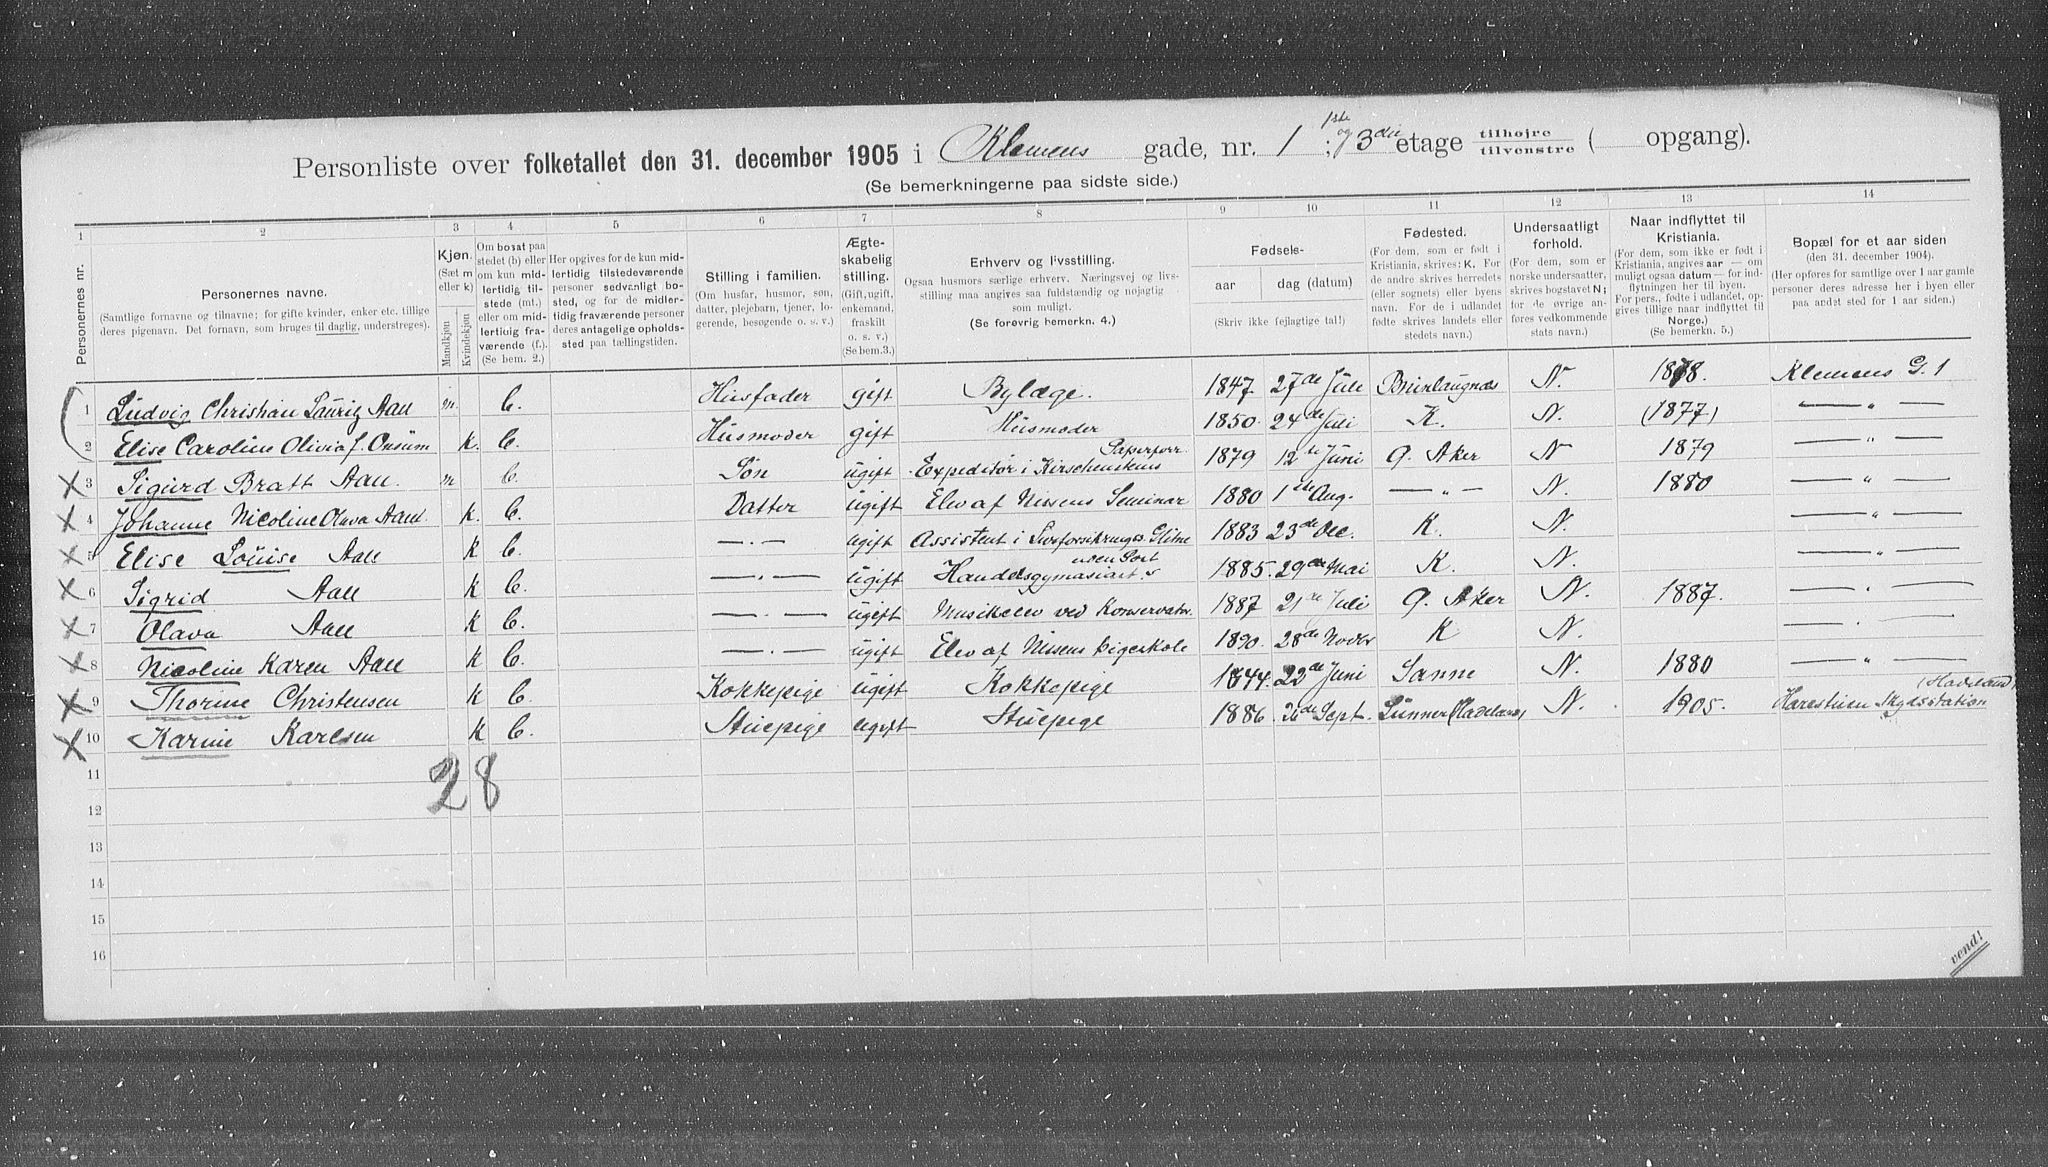 Personliste over folketallet den 31. december 1905 i Klemens gade, nr. 1 ; 1ste og 3die etage tilhøjre tilvenstre ( opgang).
(Se bemerkningerne paa sidste side.)
1 2 3 4 5 6 7 8 9 10 11 12 13 14
Personernes nr.
Personernes navne.
(Samtlige fornavne og tilnavne; for gifte kvinder, enker etc. tillige deres pigenavn. Det fornavn, som bruges til daglig, understreges).
Kjøn.
(Sæt m eller k)
Mandkjøn
Kvindekjøn
Om bosat paa stedet (b) eller om kun midlertidig tilstede (mt.) eller om midlertidig fraværende (f.). (Se bem. 2.)
Her opgives for de kun midlertidig tilstedeværende personer sedvanligt bosted, og for de midlertidig fraværende personer deres antagelige opholdssted paa tællingstiden.
Stilling i familien.
(Om husfar, husmor, søn, datter, plejebarn, tjener, logerende, besøgende o. s. v.)
Ægteskabelig stilling.
(Gift, ugift, enkemand, fraskilt o. s. v.) (Se bem. 3.)
Erhverv og livsstilling.
Ogsaa husmors særlige erhverv. Næringsvej og livsstilling maa angives saa fuldstændig og nøjagtig som muligt.
(Se forøvrig bemerkn. 4.)
Fødsels-
aar
dag (datum)
(Skriv ikke fejlagtige tal!)
Fødested.
(For dem, som er født i Kristiania, skrives: K. For de andre skrives herredets (eller sognets) eller byens navn. For de i udlandet fødte skrives landets eller stedets navn.)
Undersaatligt forhold.
(For dem, som er norske undersaatter, skrives bogstavet N; for de øvrige anføres vedkommende stats navn.)
Naar indflyttet til Kristiania.
(For dem, som ikke er født i Kristiania, angives aar — om muligt ogsaa datum — for indflytningen her til byen. For pers., fødte i udlandet, opgives tillige naar indflyttet til Norge.)
(Se bemerkn. 5.)
Bopæl for et aar siden
(den 31. december 1904).
(Her opføres for samtlige over 1 aar gamle personer deres adresse her i byen eller paa andet sted for 1 aar siden.)
1 Ludvig Christian Lauritz Aall m. b. Husfader gift Bylæge. 1847 27de Juli Brunlaugnæs N. 1878 Klemens G. 1
2 Elise Caroline Olivia f. Onsum K. b. Husmoder gift Husmoder 1850 24de Juli K. N. (1877) — " —
3 Sigurd Bratt Aall. m b. Søn ugift Expeditør i Kirschenstens Papirforr. 1879 12te Juni Ø. Aker N 1879 — " —
4 Johanne Nicoline Olava Aall. K. b. Datter ugift Elev af Nissens Seminar 1880 1ste Aug. — " — N. 1880 — " —
5 Elise Louise Aall K b. — " — ugift Assistent i Livforsikrings 1883 23de Dec. K. N. — " —
6 Sigrid Aall K b. — " — ugift Handelsgymnasiast uden Post 1885. 29de Mai K. N. — " —
7 Olava Aall K b. — " — ugift Musikelev ved Konservator. 1887 21de Juli Ø. Aker N. 1887. — " —
8 Nicoline Karen Aall K b. — " — ugift Elev af Nissens Pigeskole 1890. 28de Novbr K N. — " —
9 Thorine Christensen K b. Kokkepige ugift Kokkepige 1844. 22de Juni Sanne N. 1880 — " —
10 Karine Karlsen K b. Stuepige ugift Stuepige 1886. 26de Sept. Lunner (Hadeland) N. 1905. Harestuen Skydsstation (Hadeland)
28
11
12
13
14
15
16
vend!